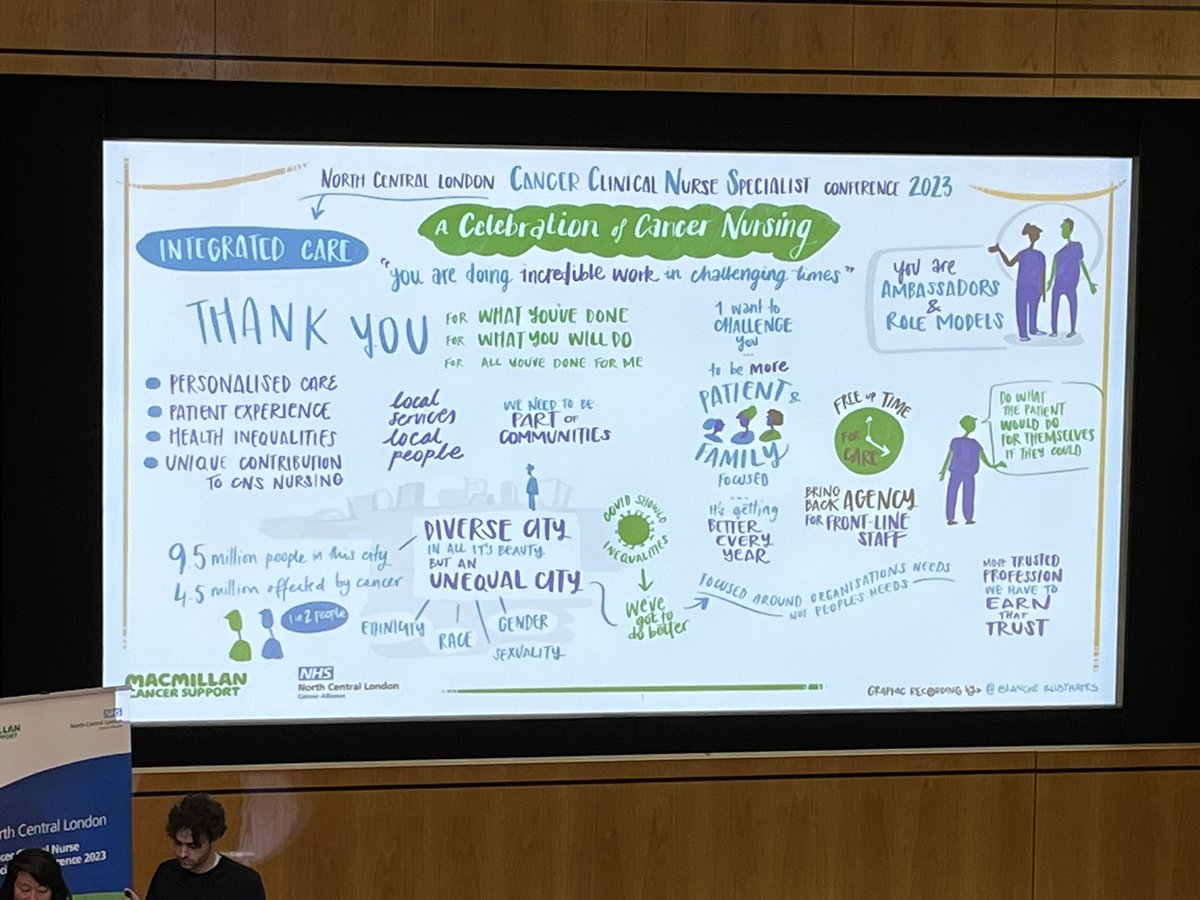 NORTH CENTRAL LONDON CANCER CLINICAL NURSE SPECIALIST CONFERENCE 2023
INTEGRATED CARE
A Celebration of Cancer Nursing
"you are doing incredible work in challenging times"
THANK YOU
FOR WHAT YOU'VE DONE
FOR WHAT YOU WILL DO
FOR ALL YOU'VE DONE FOR ME
PERSONALISED CARE
PATIENT EXPERIENCE
HEALTH INEQUALITIES
UNIQUE CONTRIBUTION
TO CNS NURSING
local
services
local
people
WE NEED TO BE
PART OF
COMMUNITIES
I want to
CHALLENGE
you
to be more
PATIENT &
FAMILY
FOCUSED
It's getting
BETTER
EVERY
YEAR
you are
AMBASSADORS
&
ROLE MODELS
FREE UP TIME
FOR
CARE
BRING
BACK AGENCY
FOR FRONT-LINE
STAFF
DO WHAT
THE PATIENT
WOULD DO
FOR THEMSELVES
IF THEY COULD
9.5 million people in this city
4.5 million affected by cancer
1 in 2 people
DIVERSE CITY
IN ALL IT'S BEAUTY
BUT AN
UNEQUAL CITY
ETHNICITY
RACE
GENDER
SEXUALITY
COVID SHOWED
INEQUALITIES
We've
got to
do better
FOCUSED AROUND ORGANISATIONS NEEDS
NOT PEOPLE'S NEEDS
MOST TRUSTED
PROFESSION
WE HAVE TO
EARN
THAT
TRUST
MACMILLAN
CANCER SUPPORT
NHS
North Central London
Cancer Alliance
GRAPHIC RECORDING by @BLANCHE ILLUSTRATES
NHS
North Central London
rth Central London
cer Clinical Nurse
erence 2023